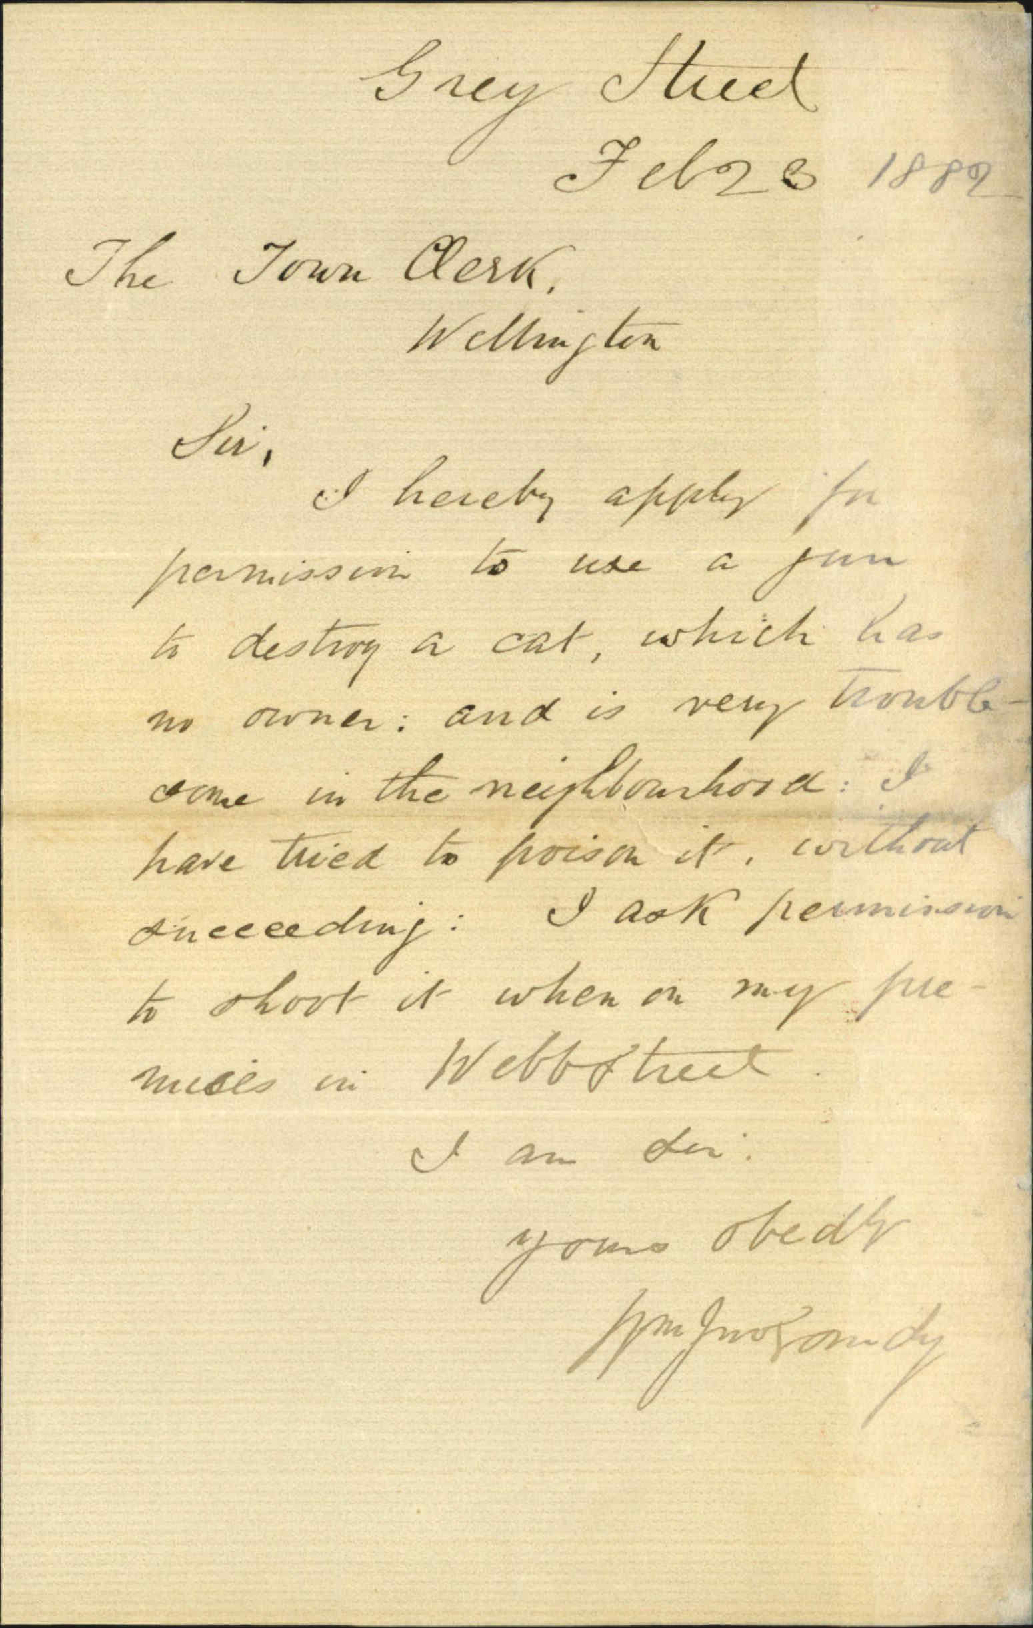 Grey Street
Feb 23 1882
The Town Clerk.
Wellington
Sir,
I hereby apply for
permission to use a gun
to destroy a cat, which has
no owner: and is very trouble-
some in the neighbourhood: I
have tried to poison it, without
succeeding: I ask permission
to shoot it when on my pre-
mises in Webb Street.
I am Sir.
yours obedtly
Wm Jno